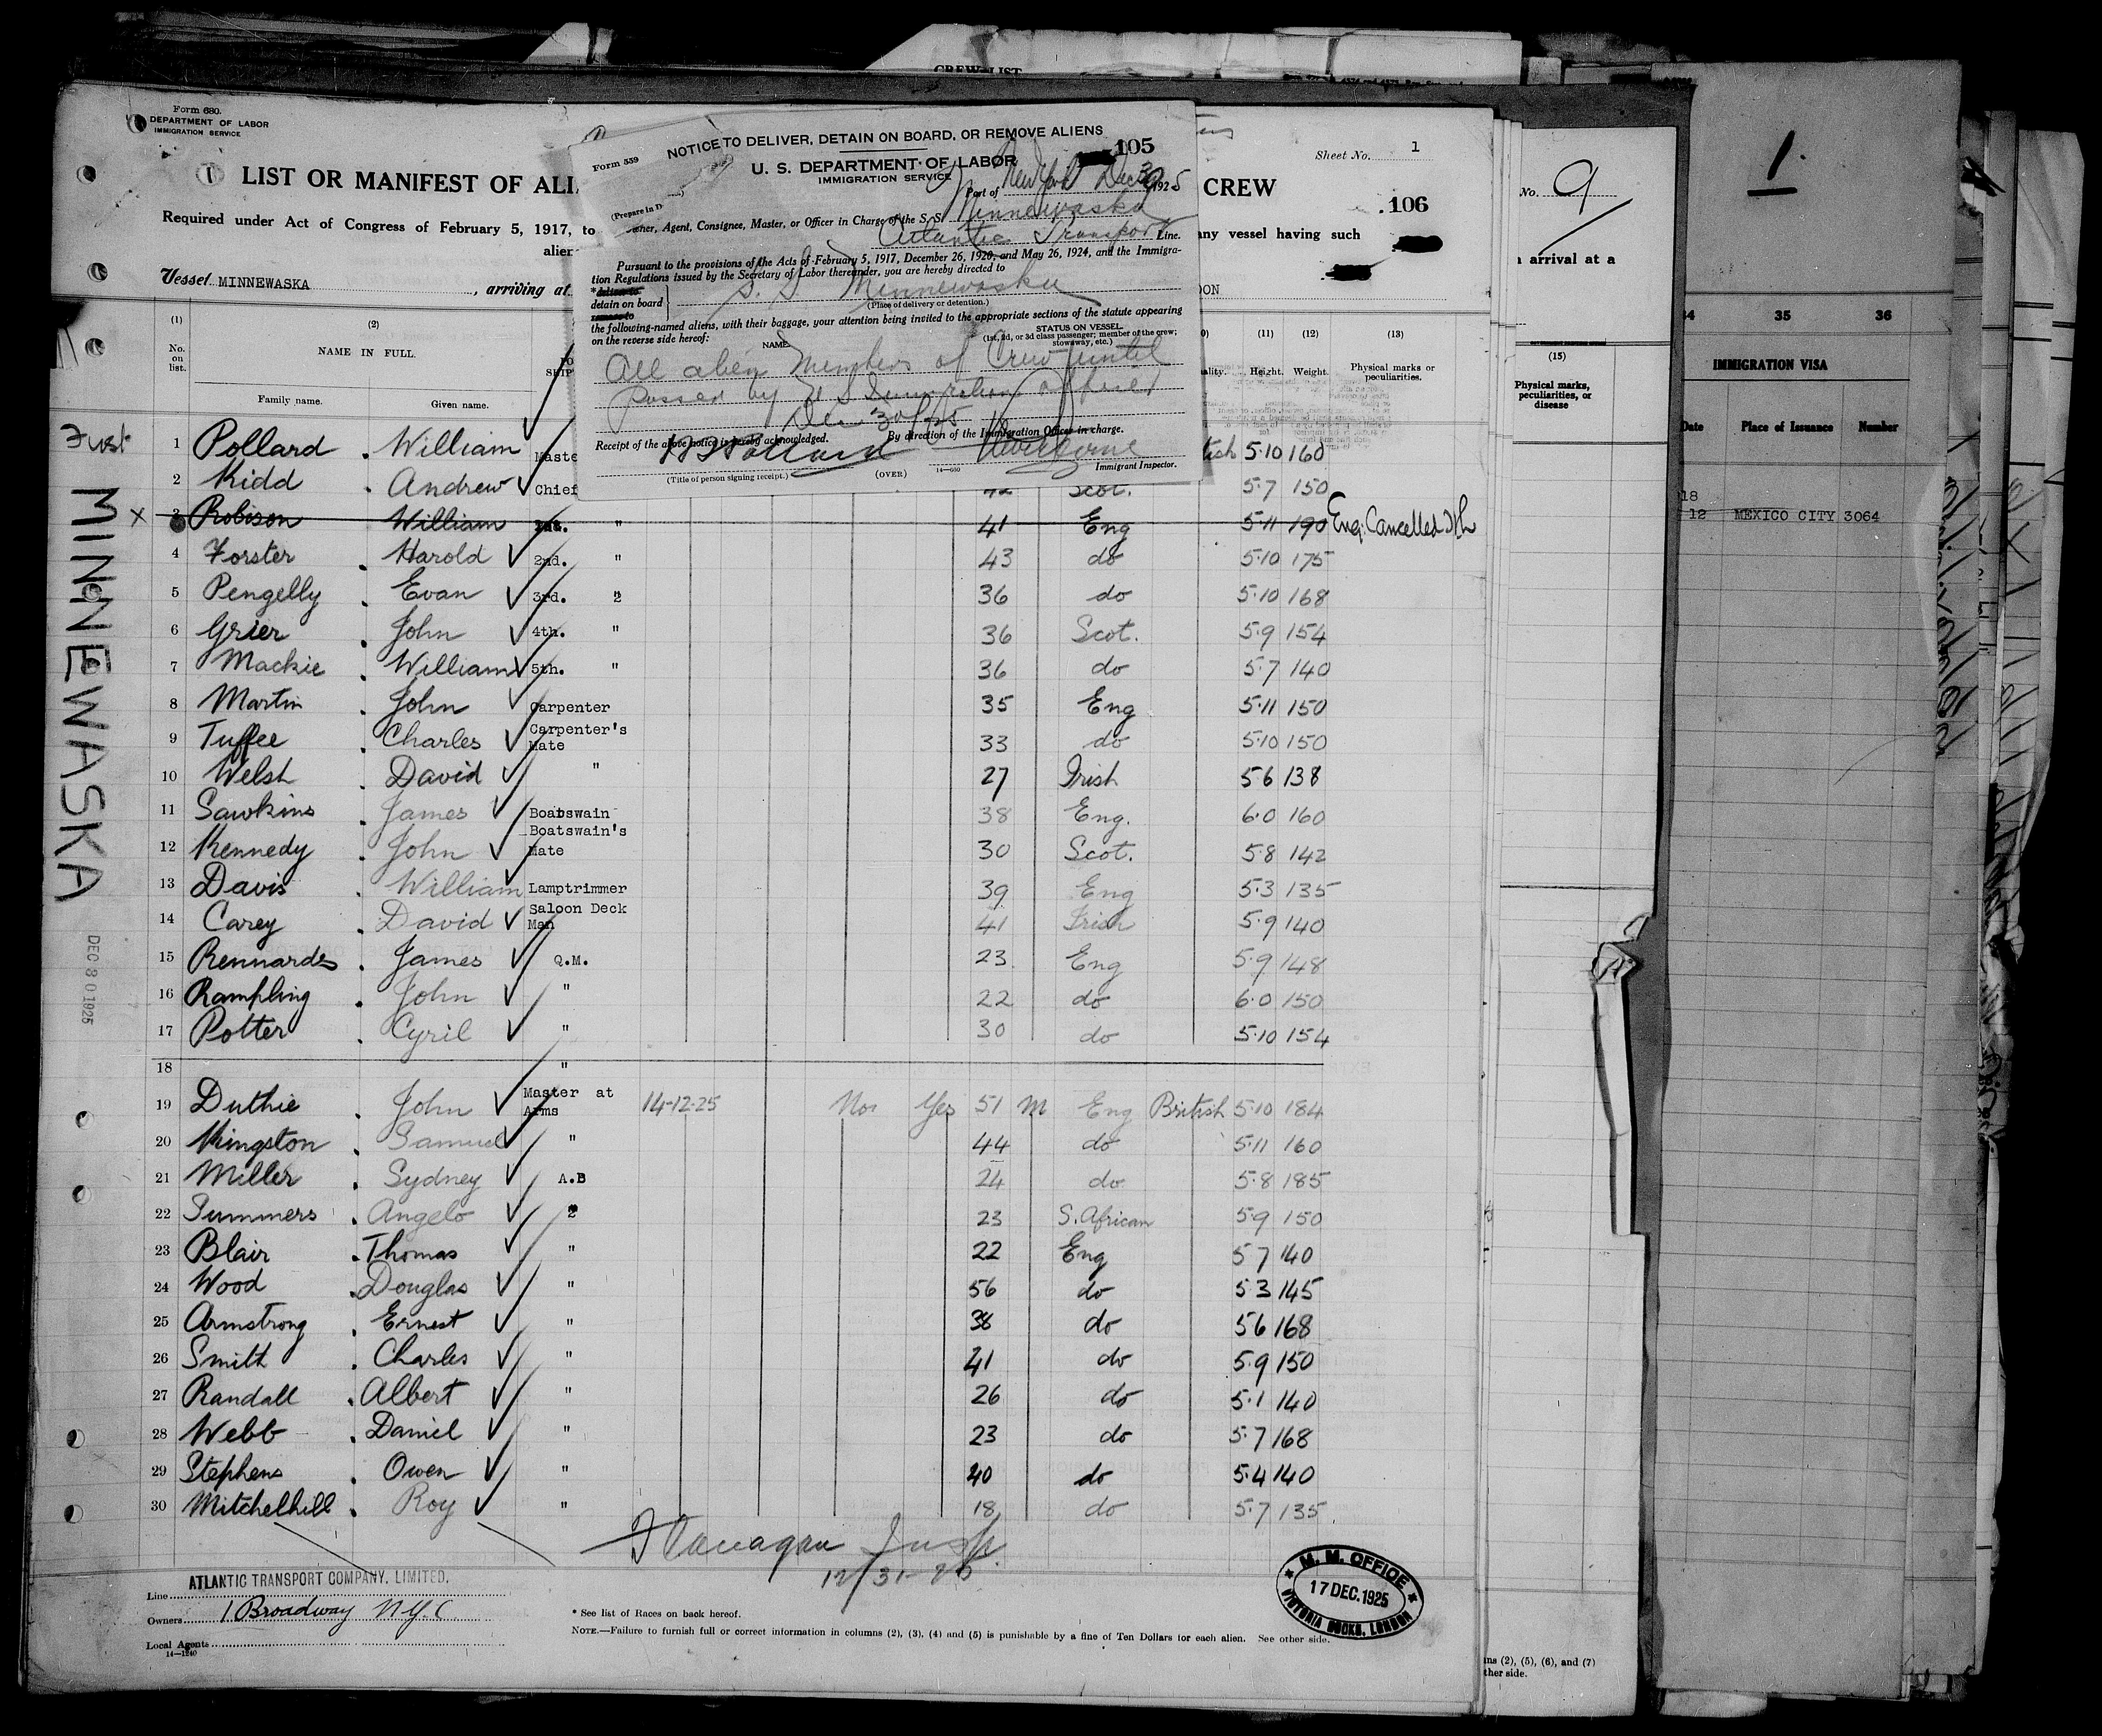 CREW LIST
Form 680.
DEPARTMENT OF LABOR
IMMIGRATION SERVICE
1 LIST OR MANIFEST OF ALI
CREW
Sheet No. 1
106
Required under Act of Congress of February 5, 1917, to
any vessel having such
alien
Vessel MINNEWASKA, arriving at
DON
Form 559
NOTICE TO DELIVER, DETAIN ON BOARD, OR REMOVE ALIENS
105
U. S. DEPARTMENT OF LABOR
IMMIGRATION SERVICE
Port of New York Dec 30 1925
(Prepare in D
ner, Agent, Consignee, Master, or Officer in Charge of the S. S. Minnewaska
Atlantic Transport Line.
Pursuant to the provisions of the Acts of February 5, 1917, December 26, 1920, and May 26, 1924, and the Immigra-
tion Regulations issued by the Secretary of Labor thereunder, you are hereby directed to
*deliver to
detain on board
remove to
S. S Minnewaska
(Place of delivery or detention.)
the following-named aliens, with their baggage, your attention being invited to the appropriate sections of the statute appearing
on the reverse side hereof:
NAME
STATUS ON VESSEL
(1st, 2d, or 3d class passenger; member of the crew;
stowaway, etc.)
All alien members of Crew until
passed by U S Immigration officer
Dec 30/25
Receipt of the above notice is hereby acknowledged. By direction of the Immigration Officer in charge.
Pollard
(Title of person signing receipt.) (OVER) 14—680 Immigrant Inspector.
(1) (2) (11) (12) (13)
No. on list. NAME IN FULL. Height. Weight. Physical marks or peculiarities.
Family name. Given name.
First
1 Pollard William Maste tish 5·10 160
2 Kidd Andrew Chief 42 Scot. 5·7 150
X 3 Robison William 1st. " 41 Eng 5·11 190 Eng. Cancelled
4 Forster Harold 2nd. " 43 do 5·10 175
5 Pengelly Evan 3rd. 2 36 do 5·10 168
6 Grier John 4th. " 36 Scot. 5·9 154
7 Mackie William 5th. " 36 do 5·7 140
8 Martin John Carpenter 35 Eng 5·11 150
9 Tuffee Charles Carpenter's Mate 33 do 5·10 150
10 Welsh David " 27 Irish 5·6 138
11 Sawkins James Boatswain 38 Eng. 6·0 160
12 Kennedy John Boatswain's Mate 30 Scot. 5·8 142
13 Davis William Lamptrimmer 39 Eng 5·3 135
14 Carey David Saloon Deck Man 41 Irish 5·9 140
15 Rennardes James Q.M. 23 Eng 5·9 148
16 Rampling John " 22 do 6·0 150
17 Potter Cyril " 30 do 5·10 154
18 "
19 Duthie John Master at Arms 14-12-25 Yes 51 M Eng British 5·10 184
20 Kingston Samuel " 44 do 5·11 160
21 Miller Sydney A.B 24 do 5·8 185
22 Summers Angelo 2 23 S. African 5·9 150
23 Blair Thomas " 22 Eng 5 7 140
24 Wood Douglas " 56 do 5·3 145
25 Armstrong Ernest " 38 do 5 6 168
26 Smith Charles " 41 do 5·9 150
27 Randall Albert " 26 do 5·1 140
28 Webb Daniel " 23 do 5·7 168
29 Stephens Owen " 40 do 5·4 140
30 Mitchelhill Roy " 18 do 5·7 135
Flanagan Insp.
12/31-25
MINNEWASKA
DEC 30 1925
Line ATLANTIC TRANSPORT COMPANY, LIMITED.
Owners 1 Broadway N.Y.C.
Local Agents
14—1240
* See list of Races on back hereof.
NOTE.—Failure to furnish full or correct information in columns (2), (3), (4) and (5) is punishable by a fine of Ten Dollars for each alien. See other side.
M. M. OFFICE
17 DEC. 1925
VICTORIA DOCKS, LONDON
No. 9
arrival at a
(15)
Physical marks, peculiarities, or disease
ns (2), (5), (6), and (7)
ther side.
1
34 35 36
IMMIGRATION VISA
Date Place of Issuance Number
18
12 MEXICO CITY 3064